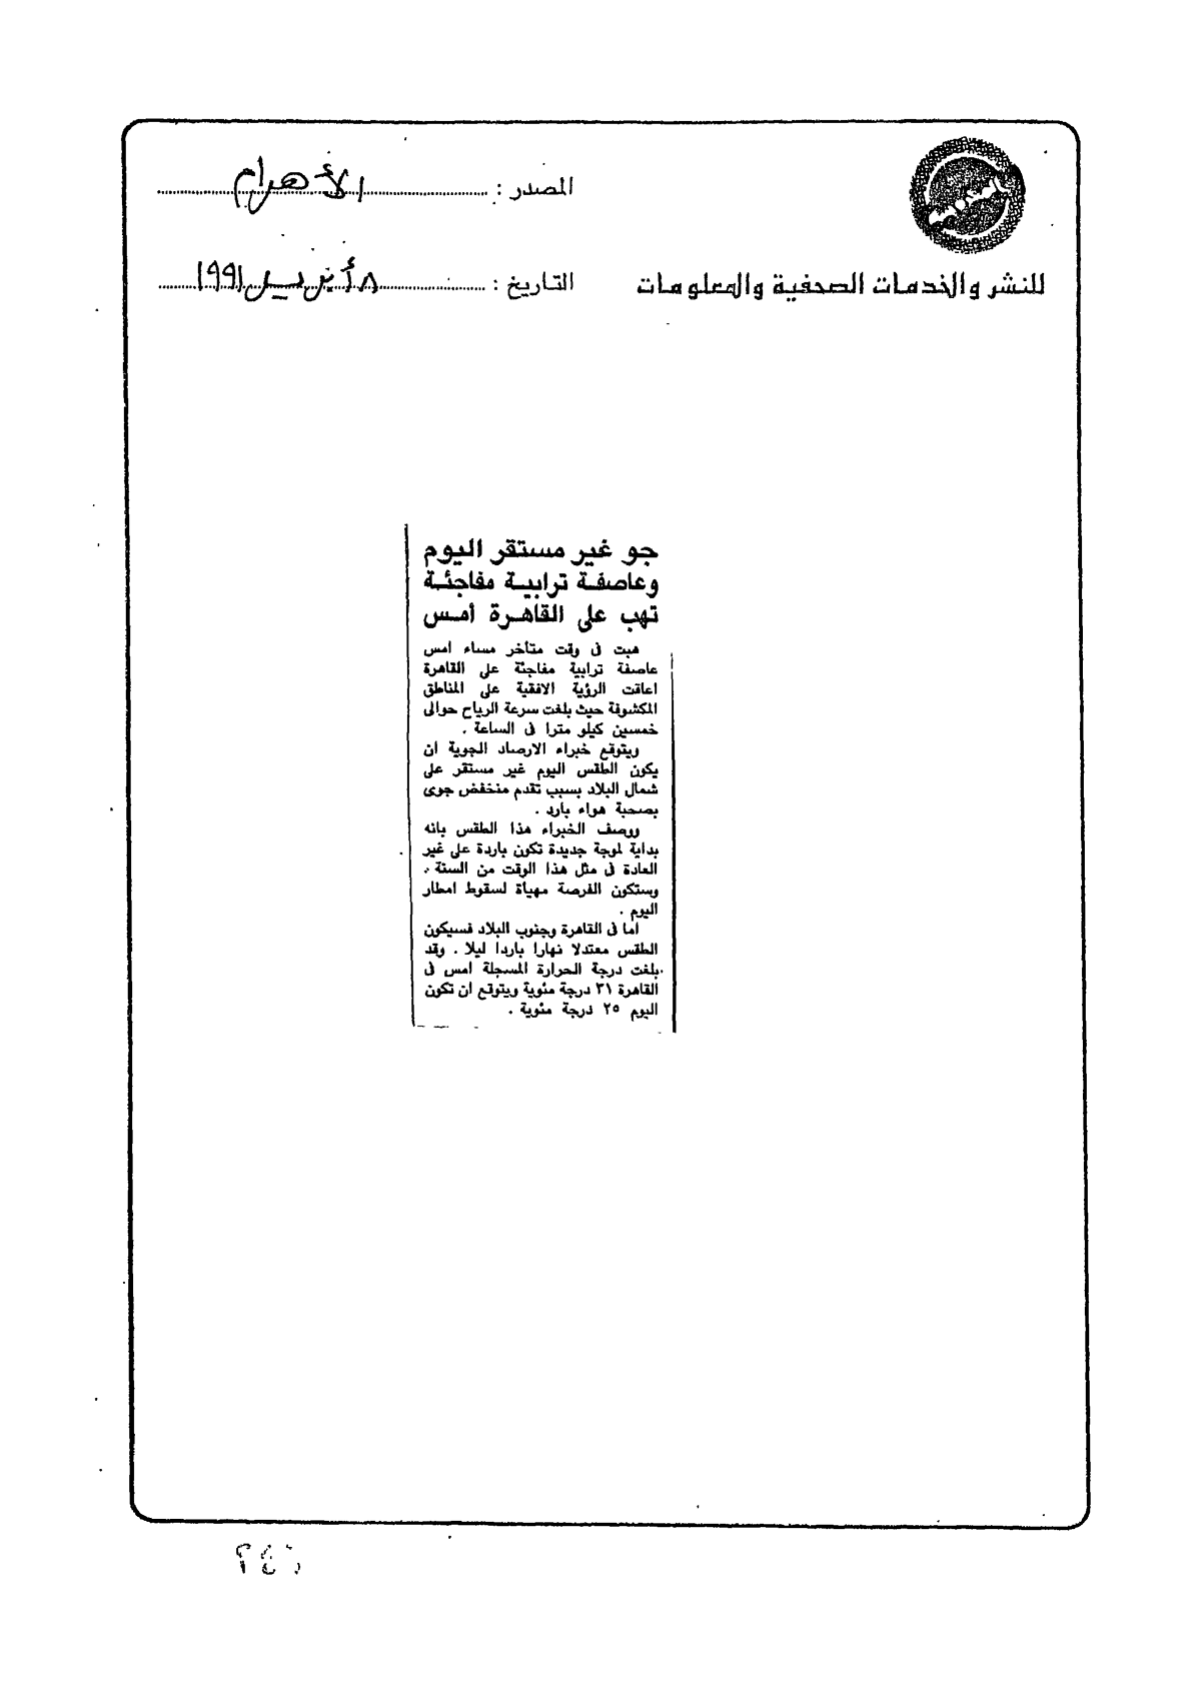 المصدر : الأهرام
للنشر والخدمات الصحفية والمعلومات
التاريخ : ٨ أبريل ١٩٩١
جو غير مستقر اليوم
وعاصفة ترابية مفاجئة
تهب على القاهرة أمس
هبت فى وقت متأخر مساء امس
عاصفة ترابية مفاجئة على القاهرة
اعاقت الرؤية الافقية على المناطق
المكشوفة حيث بلغت سرعة الرياح حوالى
خمسين كيلو مترا فى الساعة .
ويتوقع خبراء الارصاد الجوية ان
يكون الطقس اليوم غير مستقر على
شمال البلاد بسبب تقدم منخفض جوى
بصحبة هواء بارد .
ووصف الخبراء هذا الطقس بانه
بداية لموجة جديدة تكون باردة على غير
العادة فى مثل هذا الوقت من السنة .
وستكون الفرصة مهياة لسقوط امطار
اليوم .
اما فى القاهرة وجنوب البلاد فسيكون
الطقس معتدلا نهارا باردا ليلا . وقد
بلغت درجة الحرارة المسجلة امس فى
القاهرة ٣١ درجة مئوية ويتوقع ان تكون
اليوم ٢٥ درجة مئوية .